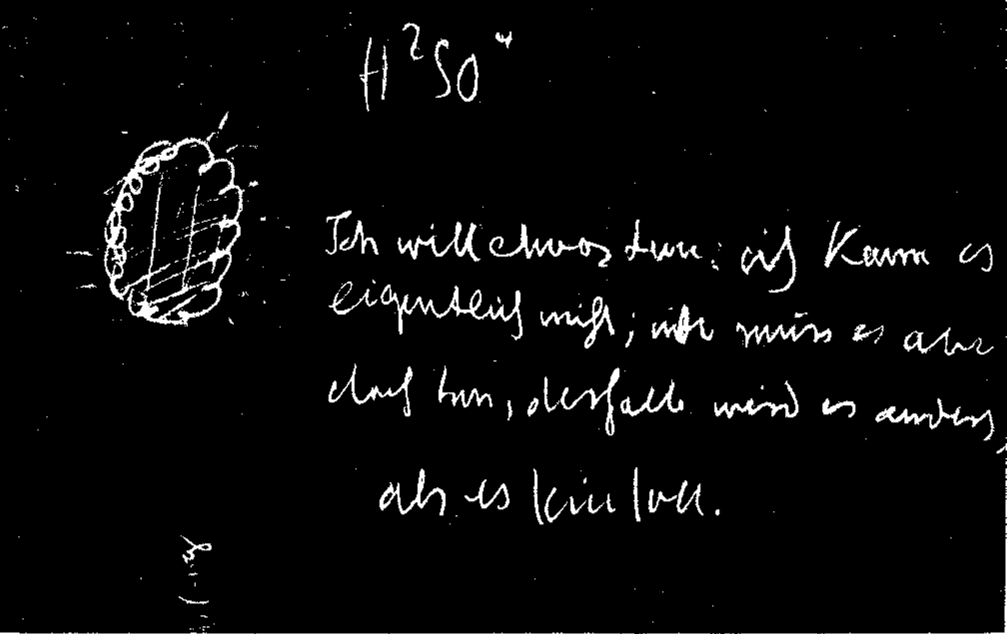 H²SO⁴
Ich will etwas tun: ich kann es
eigentlich nicht; ich muss es aber
doch tun, deshalb wird es anders,
als es sein soll.